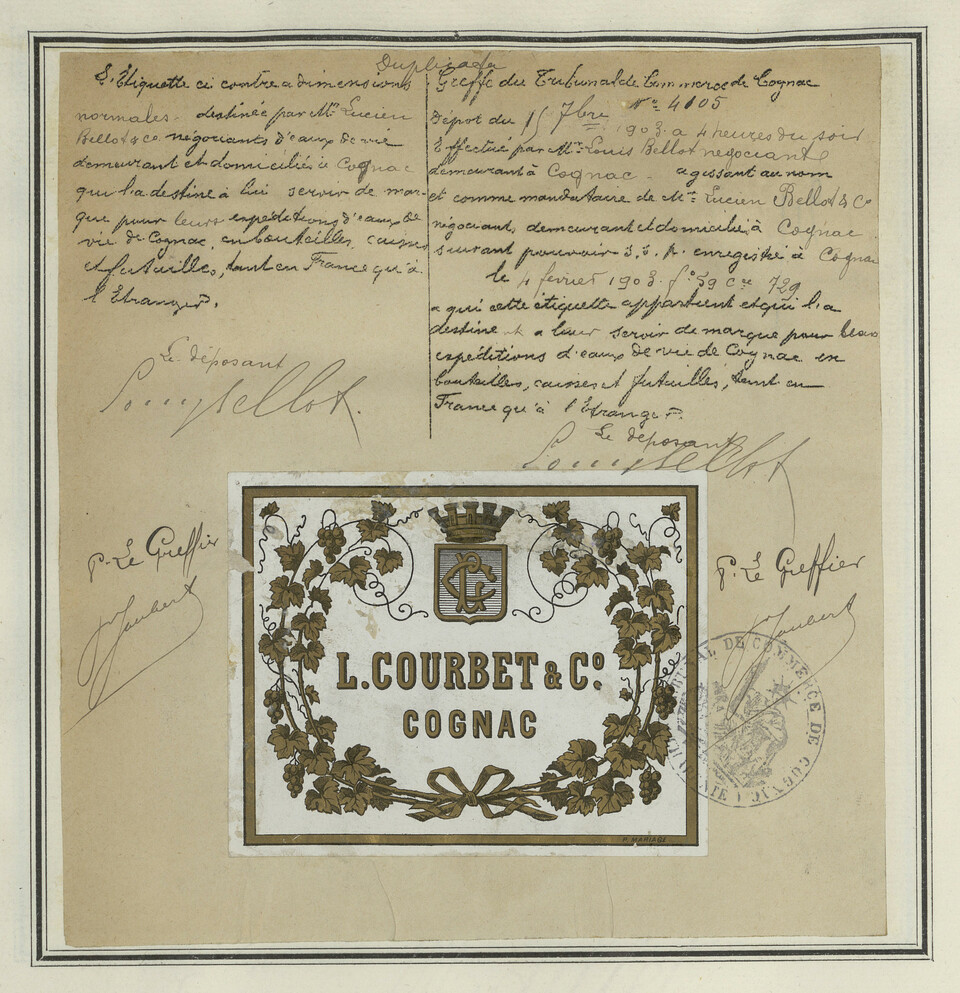 Duplicata
L'Etiquette ci contre a dimensions
normales. destinée par Mrs Lucien
Bellot & Co négociants d'eaux de vie
demeurant et domiciliés à Cognac
qui l'a destine à lui servir de mar-
que pour leurs expéditions d'eaux de
vie de Cognac, en bouteilles, caisses
et futailles, tant en France qu'à
l'Etranger.
Le déposant
Louis Bellot
Greffe du Tribunal de Commerce de Cognac
No 4105
Dépot du 15 7bre 1903 a 4 heures du soir
Effectué par Mr Louis Bellot négociant
demeurant à Cognac - agissant au nom
et comme mandataire de Mrs Lucien Bellot & Co
négociants demeurant et domiciliés à Cognac
suivant pouvoir S.S.P. enregistré à Cognac
le 4 fevrier 1903. fo 59 Ce 729
a qui cette étiquette appartient et qui l'a
destine a leur servir de marque pour
expéditions d'eaux de vie de Cognac en
bouteilles, caisses et futailles, tant en
France qu'à l'Etranger.
Le déposant
Louis Bellot
P. Le Greffier
Joubert
P. Le Greffier
Joubert
L. COURBET & Co.
COGNAC
P. MARIAGE
TRIBUNAL DE COMMERCE DE COGNAC (CHARENTE)